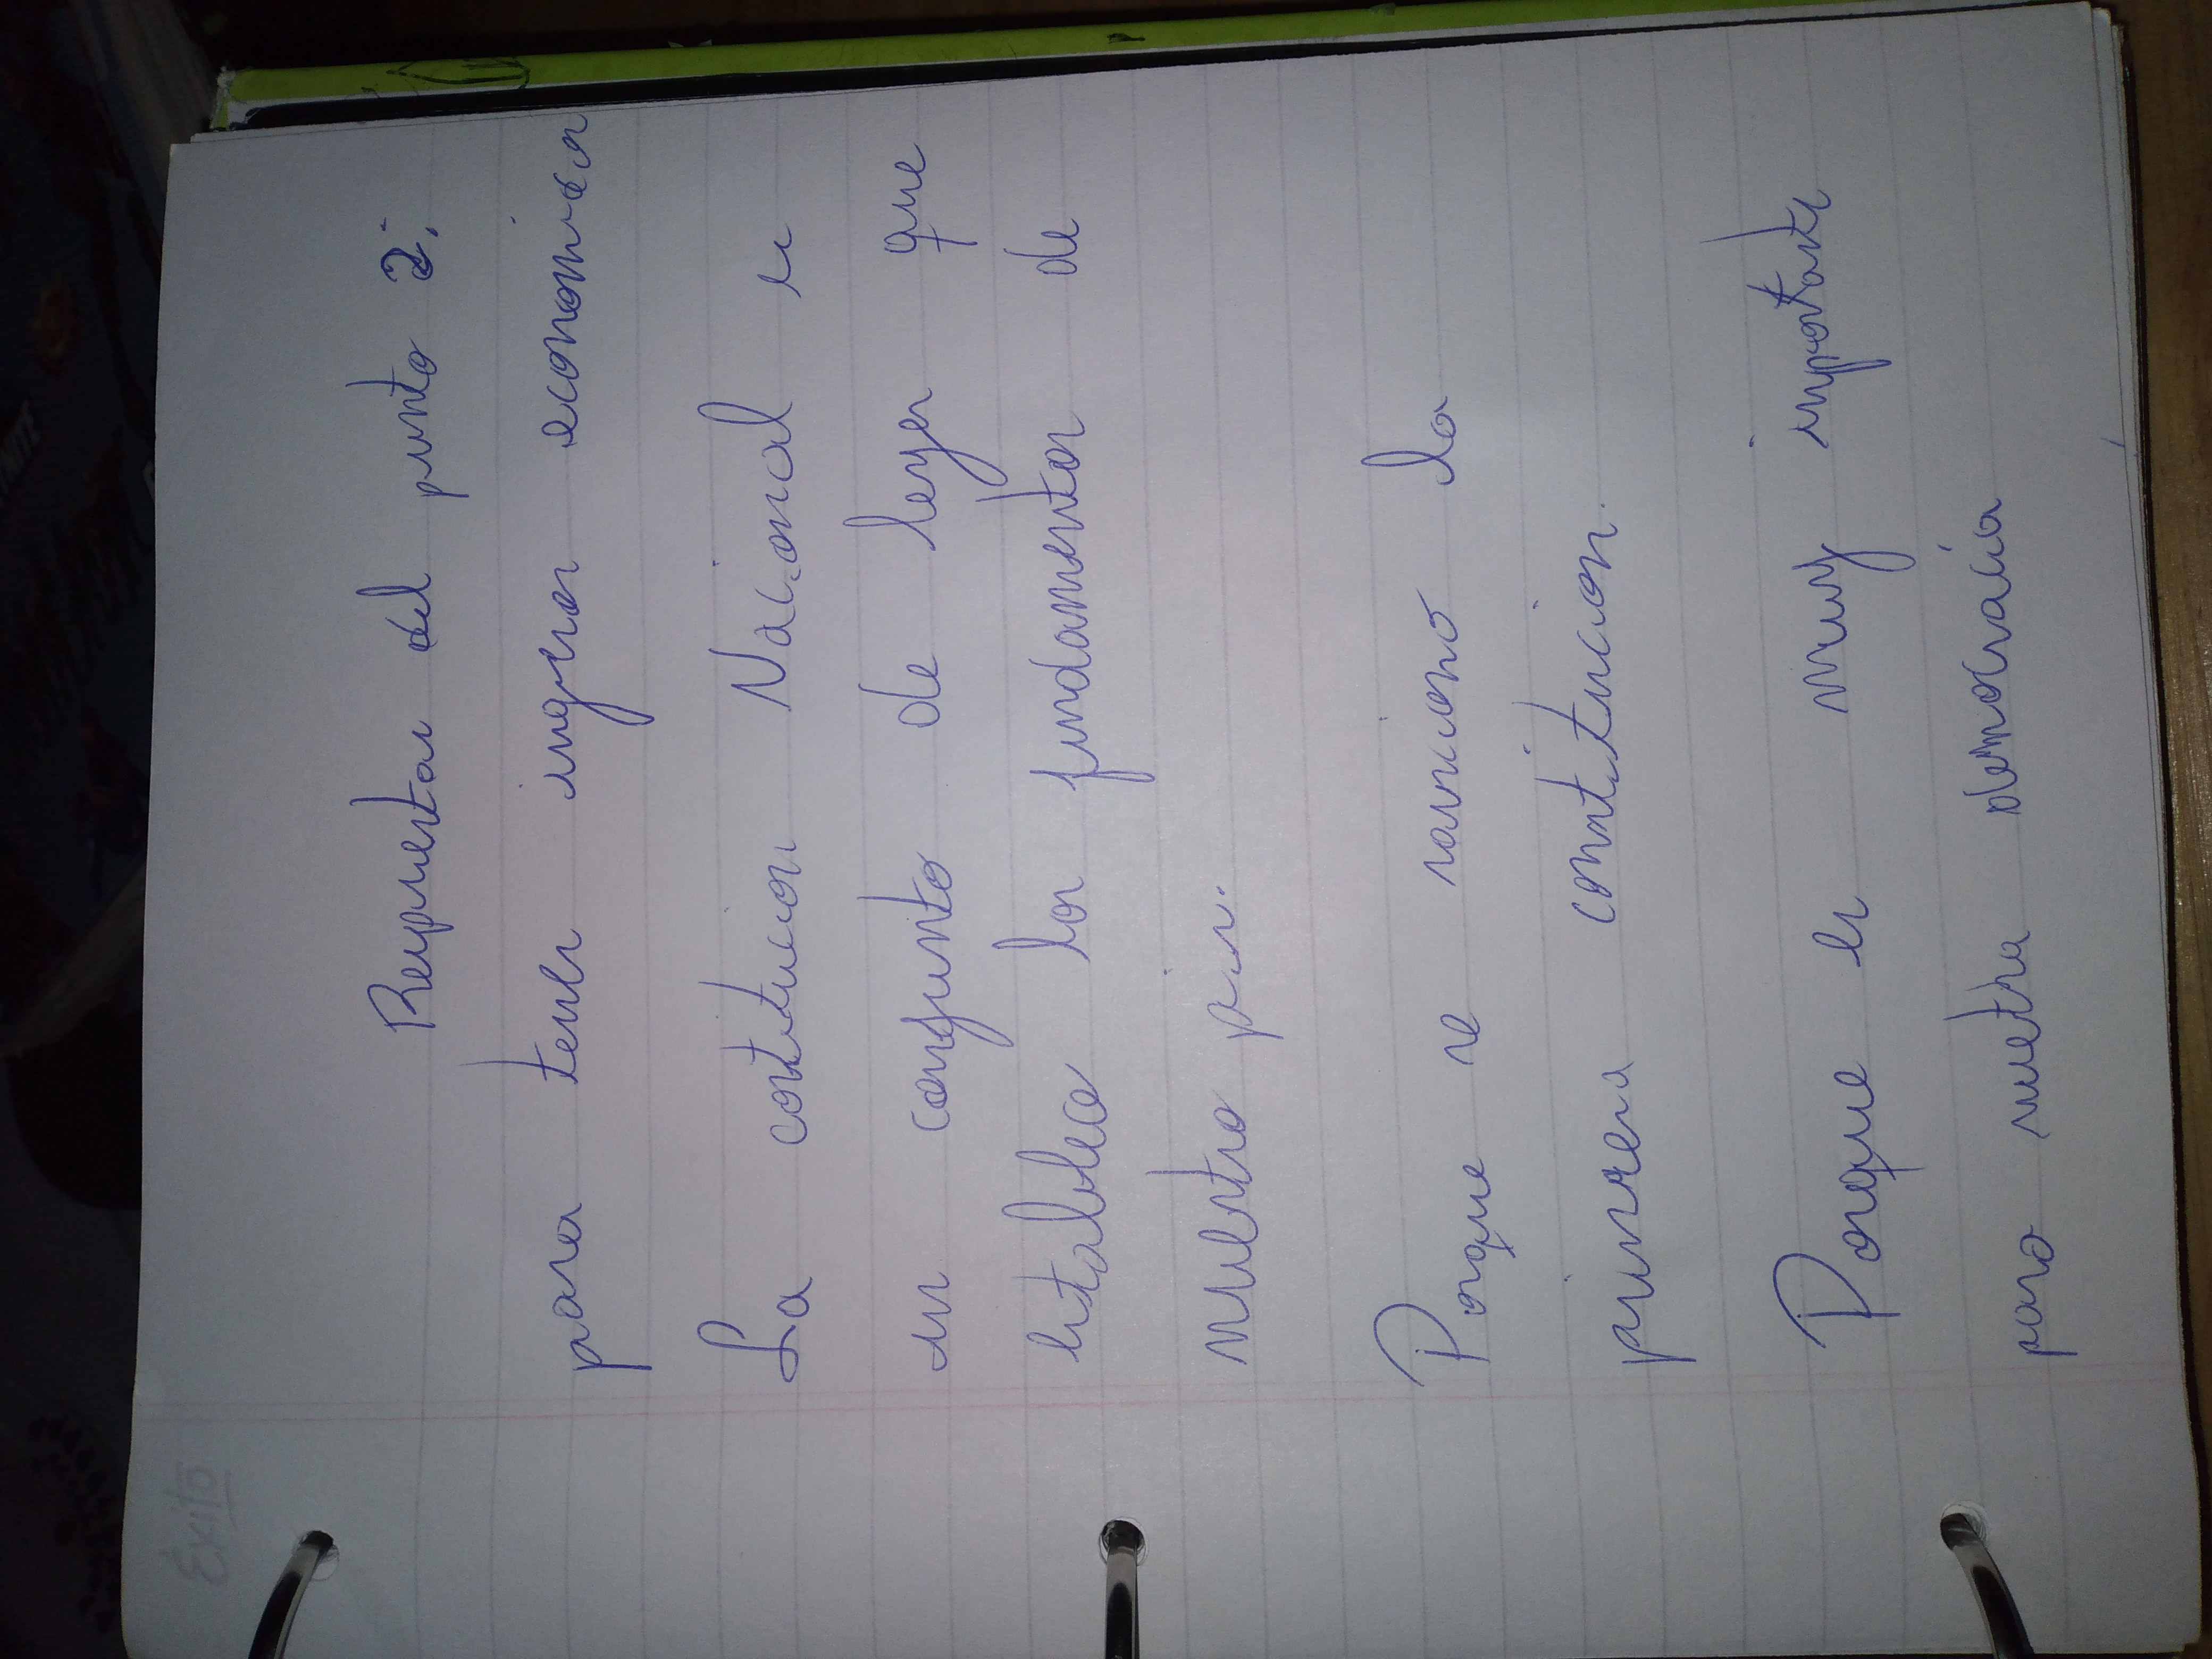 Respuestas del punto 2:
para tener ingresos economicos
La constitucion Nacional es
un conjunto de leyes que
establece los fundamentos de
nuestro pais.
Porque se sanciono la
primera constitucion.
Porque es muy importante
para nuestra democracia
Éxito